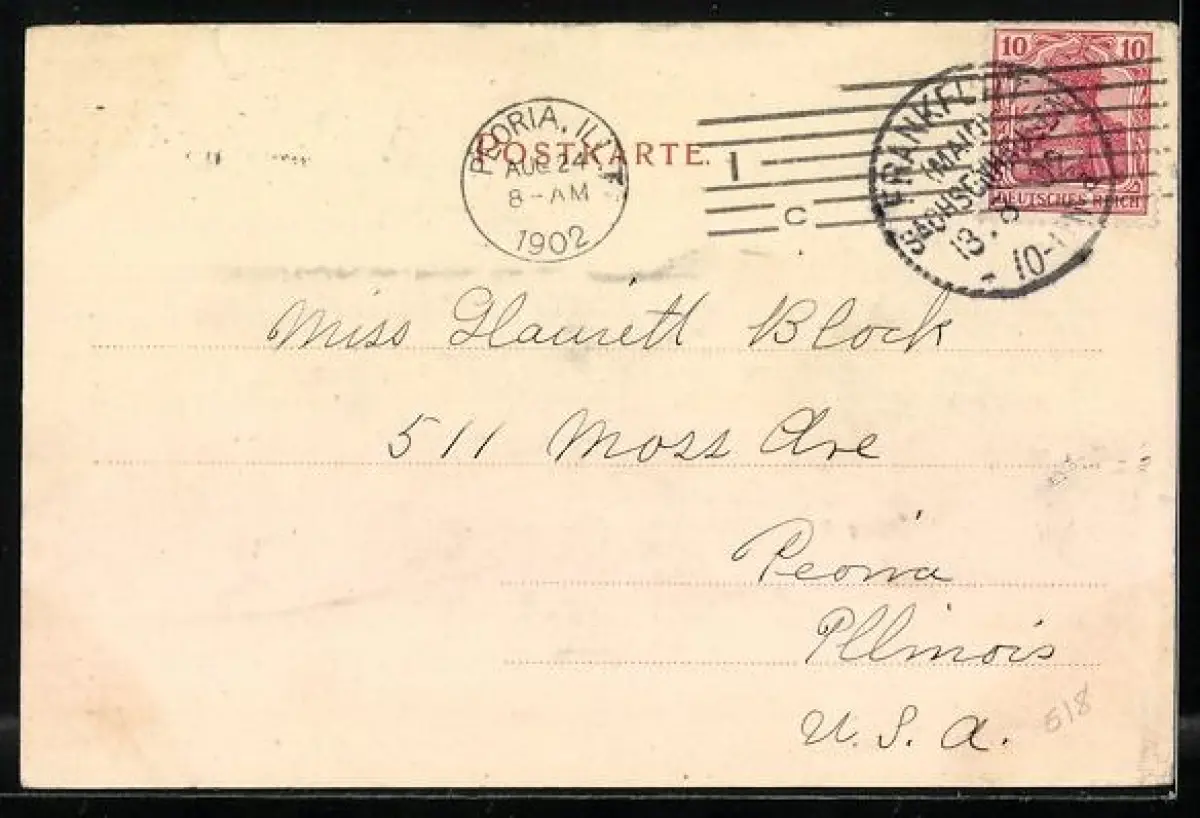 10 10
DEUTSCHES REICH
FRANKFURT
(MAIN)
SACHSENHAUSEN
13.8.02
10-11
PEORIA, ILL.
AUG 24
8-AM
1902
POSTKARTE.
1
C
Miss Block
511 Moss Ave
Peoria
Illinois
U.S.A.
518